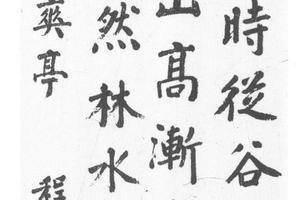 時從谷
山高漸
然林水
爽亭 程